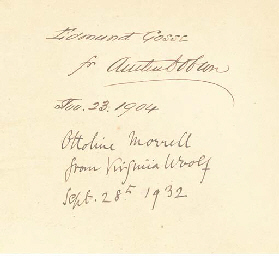 Edmund Gosse
fr Austin Dobson
Nov. 23. 1904
Ottoline Morrell
from Virginia Woolf
Sept. 28th 1932